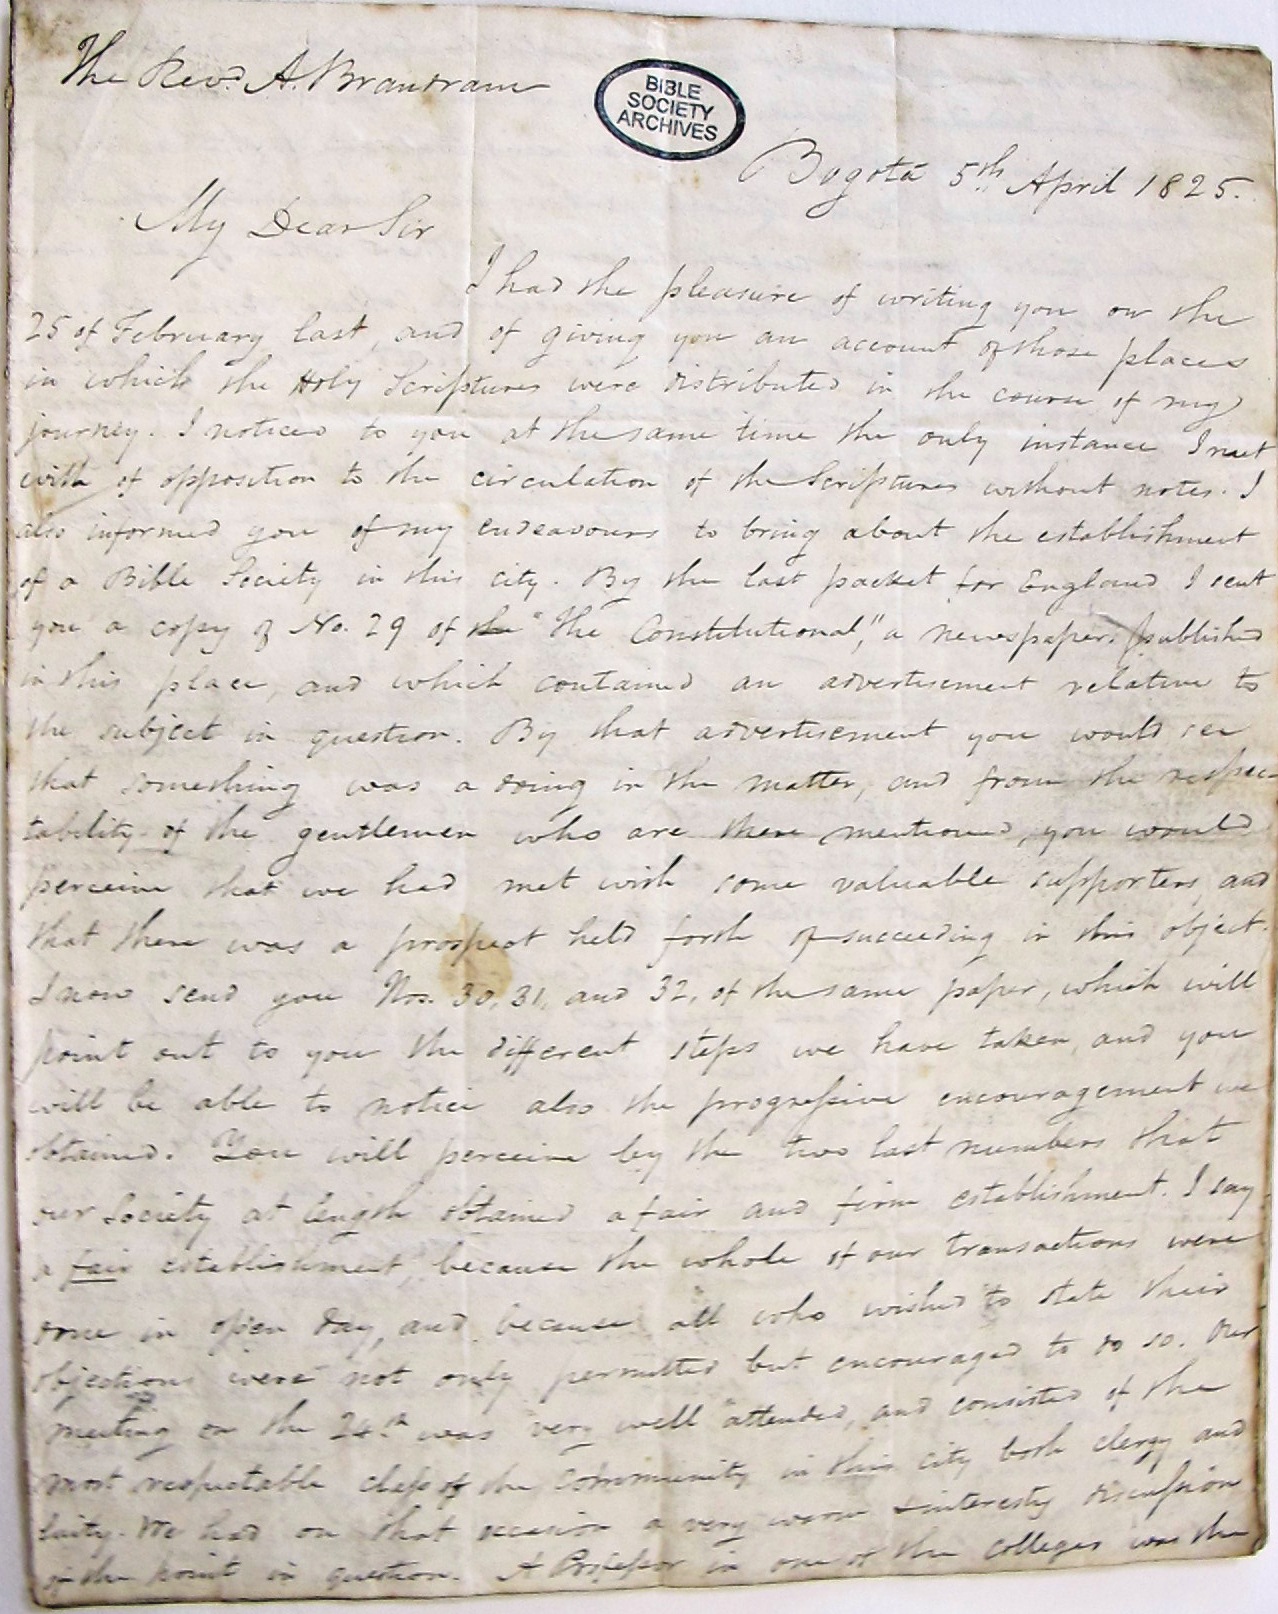 The Revd. A. Brandram
BIBLE
SOCIETY
ARCHIVES
Bogotá 5th April 1825.
My Dear Sir
I had the pleasure of writing you on the
25 of February last, and of giving you an account of those places
in which the Holy Scriptures were distributed in the course of my
journey. I noticed to you at the same time the only instance I met
with of opposition to the circulation of the Scriptures without notes. I
also informed you of my endeavours to bring about the establishment
of a Bible Society in this city. By the last packet for England I sent
you a copy of No. 29 of the "The Constitutional," a newspaper published
in this place, and which contained an advertisement relative to
the subject in question. By that advertisement you would see
that something was a doing in the matter, and from the respec-
tability of the gentlemen who are there mentioned, you would
perceive that we had met with some valuable supporters, and
that there was a prospect held forth of succeeding in this object.
I now send you Nos. 30, 31, and 32, of the same paper, which will
point out to you the different steps we have taken, and you
will be able to notice also the progressive encouragement we
obtained. You will perceive by the two last numbers that
our Society at length obtained a fair and firm establishment. I say
a fair establishment, because the whole of our transactions were
done in open day, and because all who wished to state their
objections were not only permitted but encouraged to do so. Our
meeting on the 24th was very well attended, and consisted of the
most respectable class of the community in this city both clergy and
laity. We had on that occasion a very warm & interestg discussion
of the point in question. A Professor in one of the colleges was the